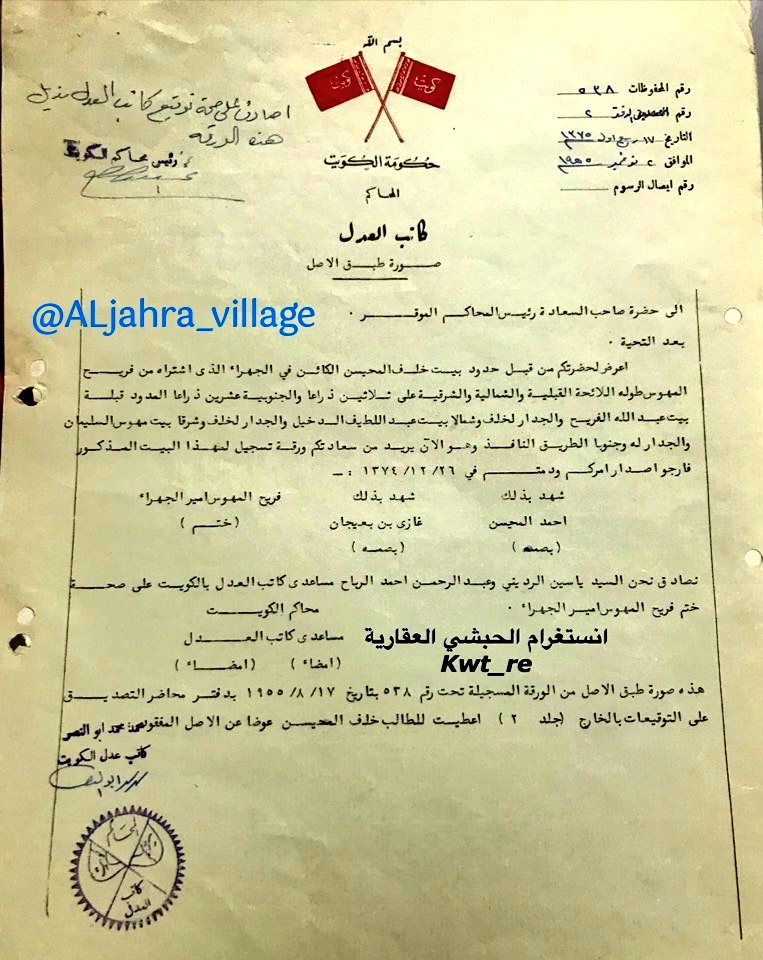 بسم الله
كويت
كويت
حكومة الكويت
المحاكم
رقم المحفوظات ٥٣٨
رقم التصديق الدفتر ٢
التاريخ ١٧ ربيع اول ١٣٧٥
الموافق ٢ نوفمبر ١٩٥٥
رقم ايصال الرسوم
اصادق على صحة توقيع كاتب العدل بذيل
هذه الورقة
رئيس محاكم الكويت
كاتب العدل
صورة طبق الاصل
@ALjahra_village
الى حضرة صاحب السعادة رئيس المحاكم الموقر ٠
بعد التحية ٠
اعرض لحضرتكم من قبل حدود بيت خلف المحيسن الكائن في الجهراء الذى اشتراه من فريح
المهوس طوله اللائحة القبلية والشمالية والشرقية على ثلاثين ذراعا والجنوبية عشرين ذراعا المدود قبلة
بيت عبد الله الفريح والجدار لخلف وشمالا بيت عبد اللطيف الدخيل والجدار لخلف وشرقا بيت مهوس السليمان
والجدار له وجنوبا الطريق النافذ وهو الآن يريد من سعادتكم ورقة تسجيل لهذا البيت المذكور
فارجو اصدار امركم ودمتم في ٢٦ /١٢ /١٣٧٤ : ــ
شهد بذلك شهد بذلك فريح المهوس امير الجهراء
احمد المحيسن غازى بن بعيجان ( ختم )
( بصمه ) ( بصمه )
نصادق نحن السيد ياسين الرديني وعبد الرحمن احمد الرباح مساعدى كاتب العدل بالكويت على صحة
ختم فريح المهوس امير الجهراء ٠ محاكم الكويت
مساعدى كاتب العدل
( امضاء ) ( امضاء )
انستغرام الحبشي العقارية
Kwt_re
هذه صورة طبق الاصل من الورقة المسجلية تحت رقم ٥٣٨ بتاريخ ١٧ /٨ /١٩٥٥ بدفتر محاضر التصديق
على التوقيعات بالخارج (جلد ٢ ) اعطيت للطالب خلف المحيسن عوضا عن الاصل المفقود
محمد ابو النصر
كاتب عدل الكويت
المحاكم
كاتب
العدل